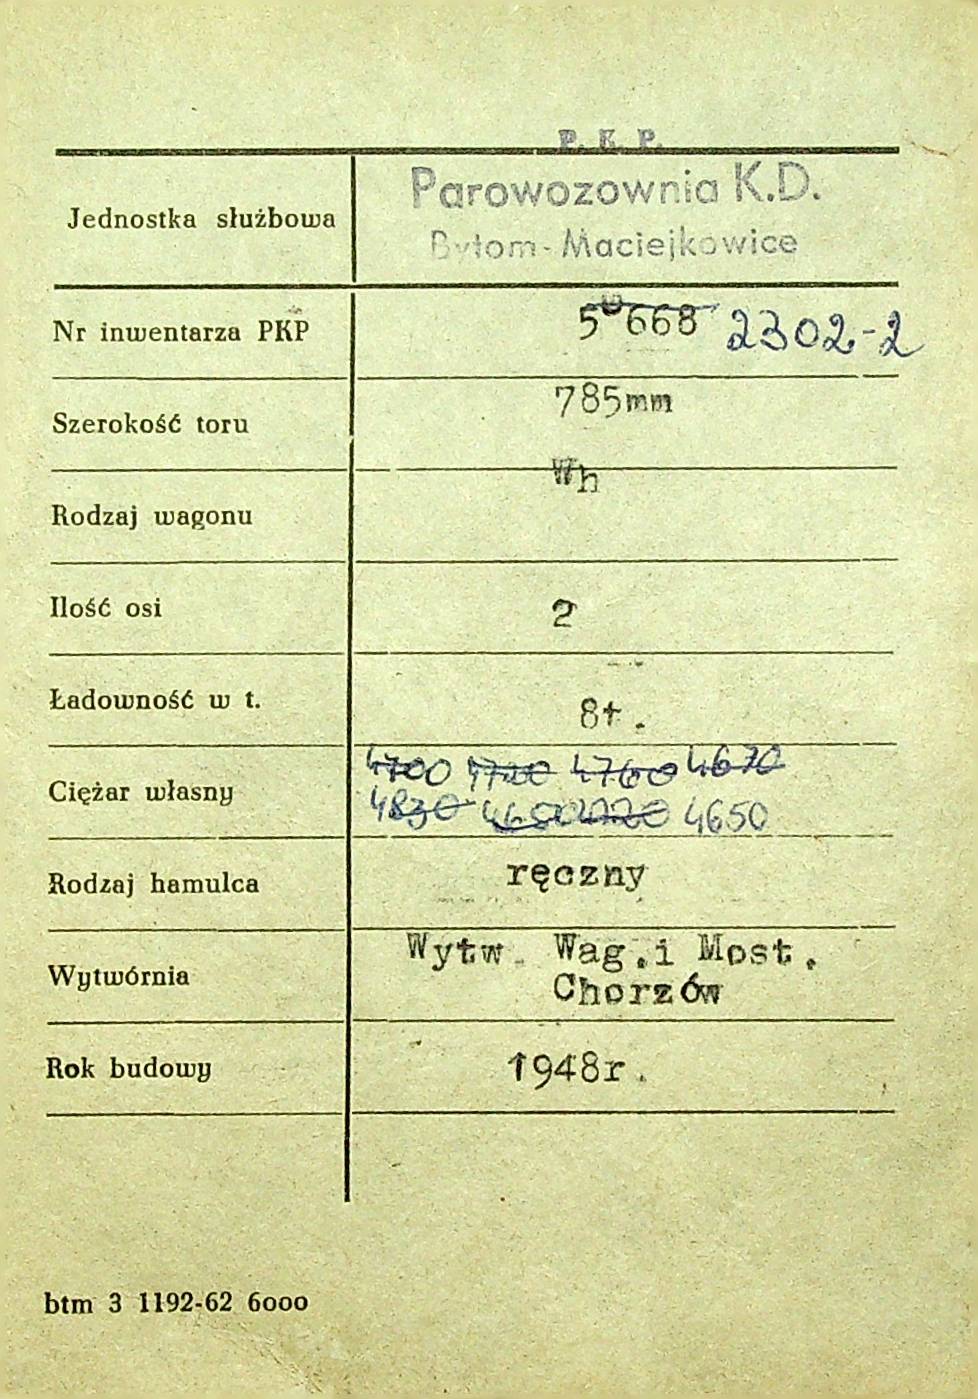 P. K. P.
Jednostka służbowa Parowozownia K.D.
Bytom-Maciejkowice
Nr inwentarza PKP 5 668 2302-2
Szerokość toru 785mm
Rodzaj wagonu Wh
Ilość osi 2
Ładowność w t. 8t.
Ciężar własny 4700 4720 4760 4670
4830 4650
Rodzaj hamulca ręczny
Wytwórnia Wytw. Wag.i Most.
Chorzów
Rok budowy 1948r.
btm 3 1192-62 6000